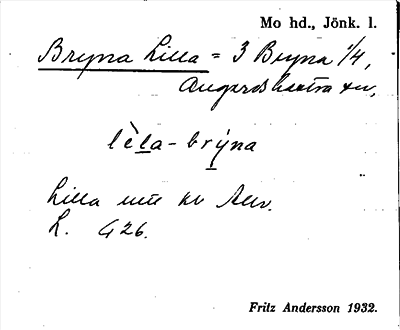 Mo hd., Jönk. l.
Bryna Lilla = 3 Bryna 1/4,
Angerdshestra sn,
lèla-brýna
Lilla
L. 426.
Fritz Andersson 1932.